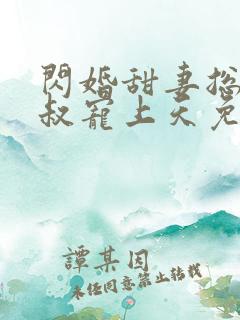 閃婚甜妻總
叔寵上天免
譚某因
未經同意禁止轉載